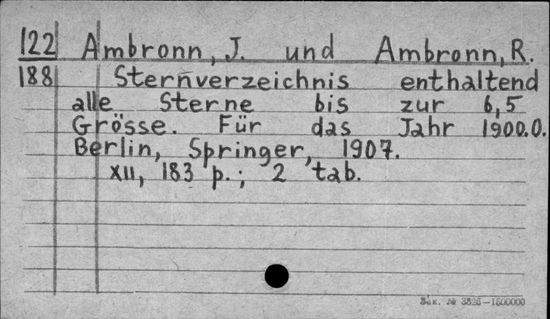 122 Ambronn, J. und Ambronn, R.
188 Sternverzeichnis enthaltend
alle Sterne bis zur 6,5
Grösse. Für das Jahr 1900.0.
Berlin, Springer, 1907.
XII, 183 p.; 2 tab.
Зак. № 3826—1500000